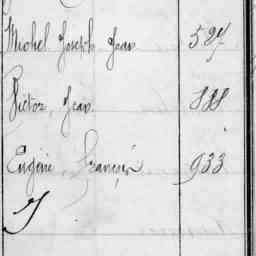 Michel Joseph Jean 527
Victor, Jean 888
Eugène, François 933